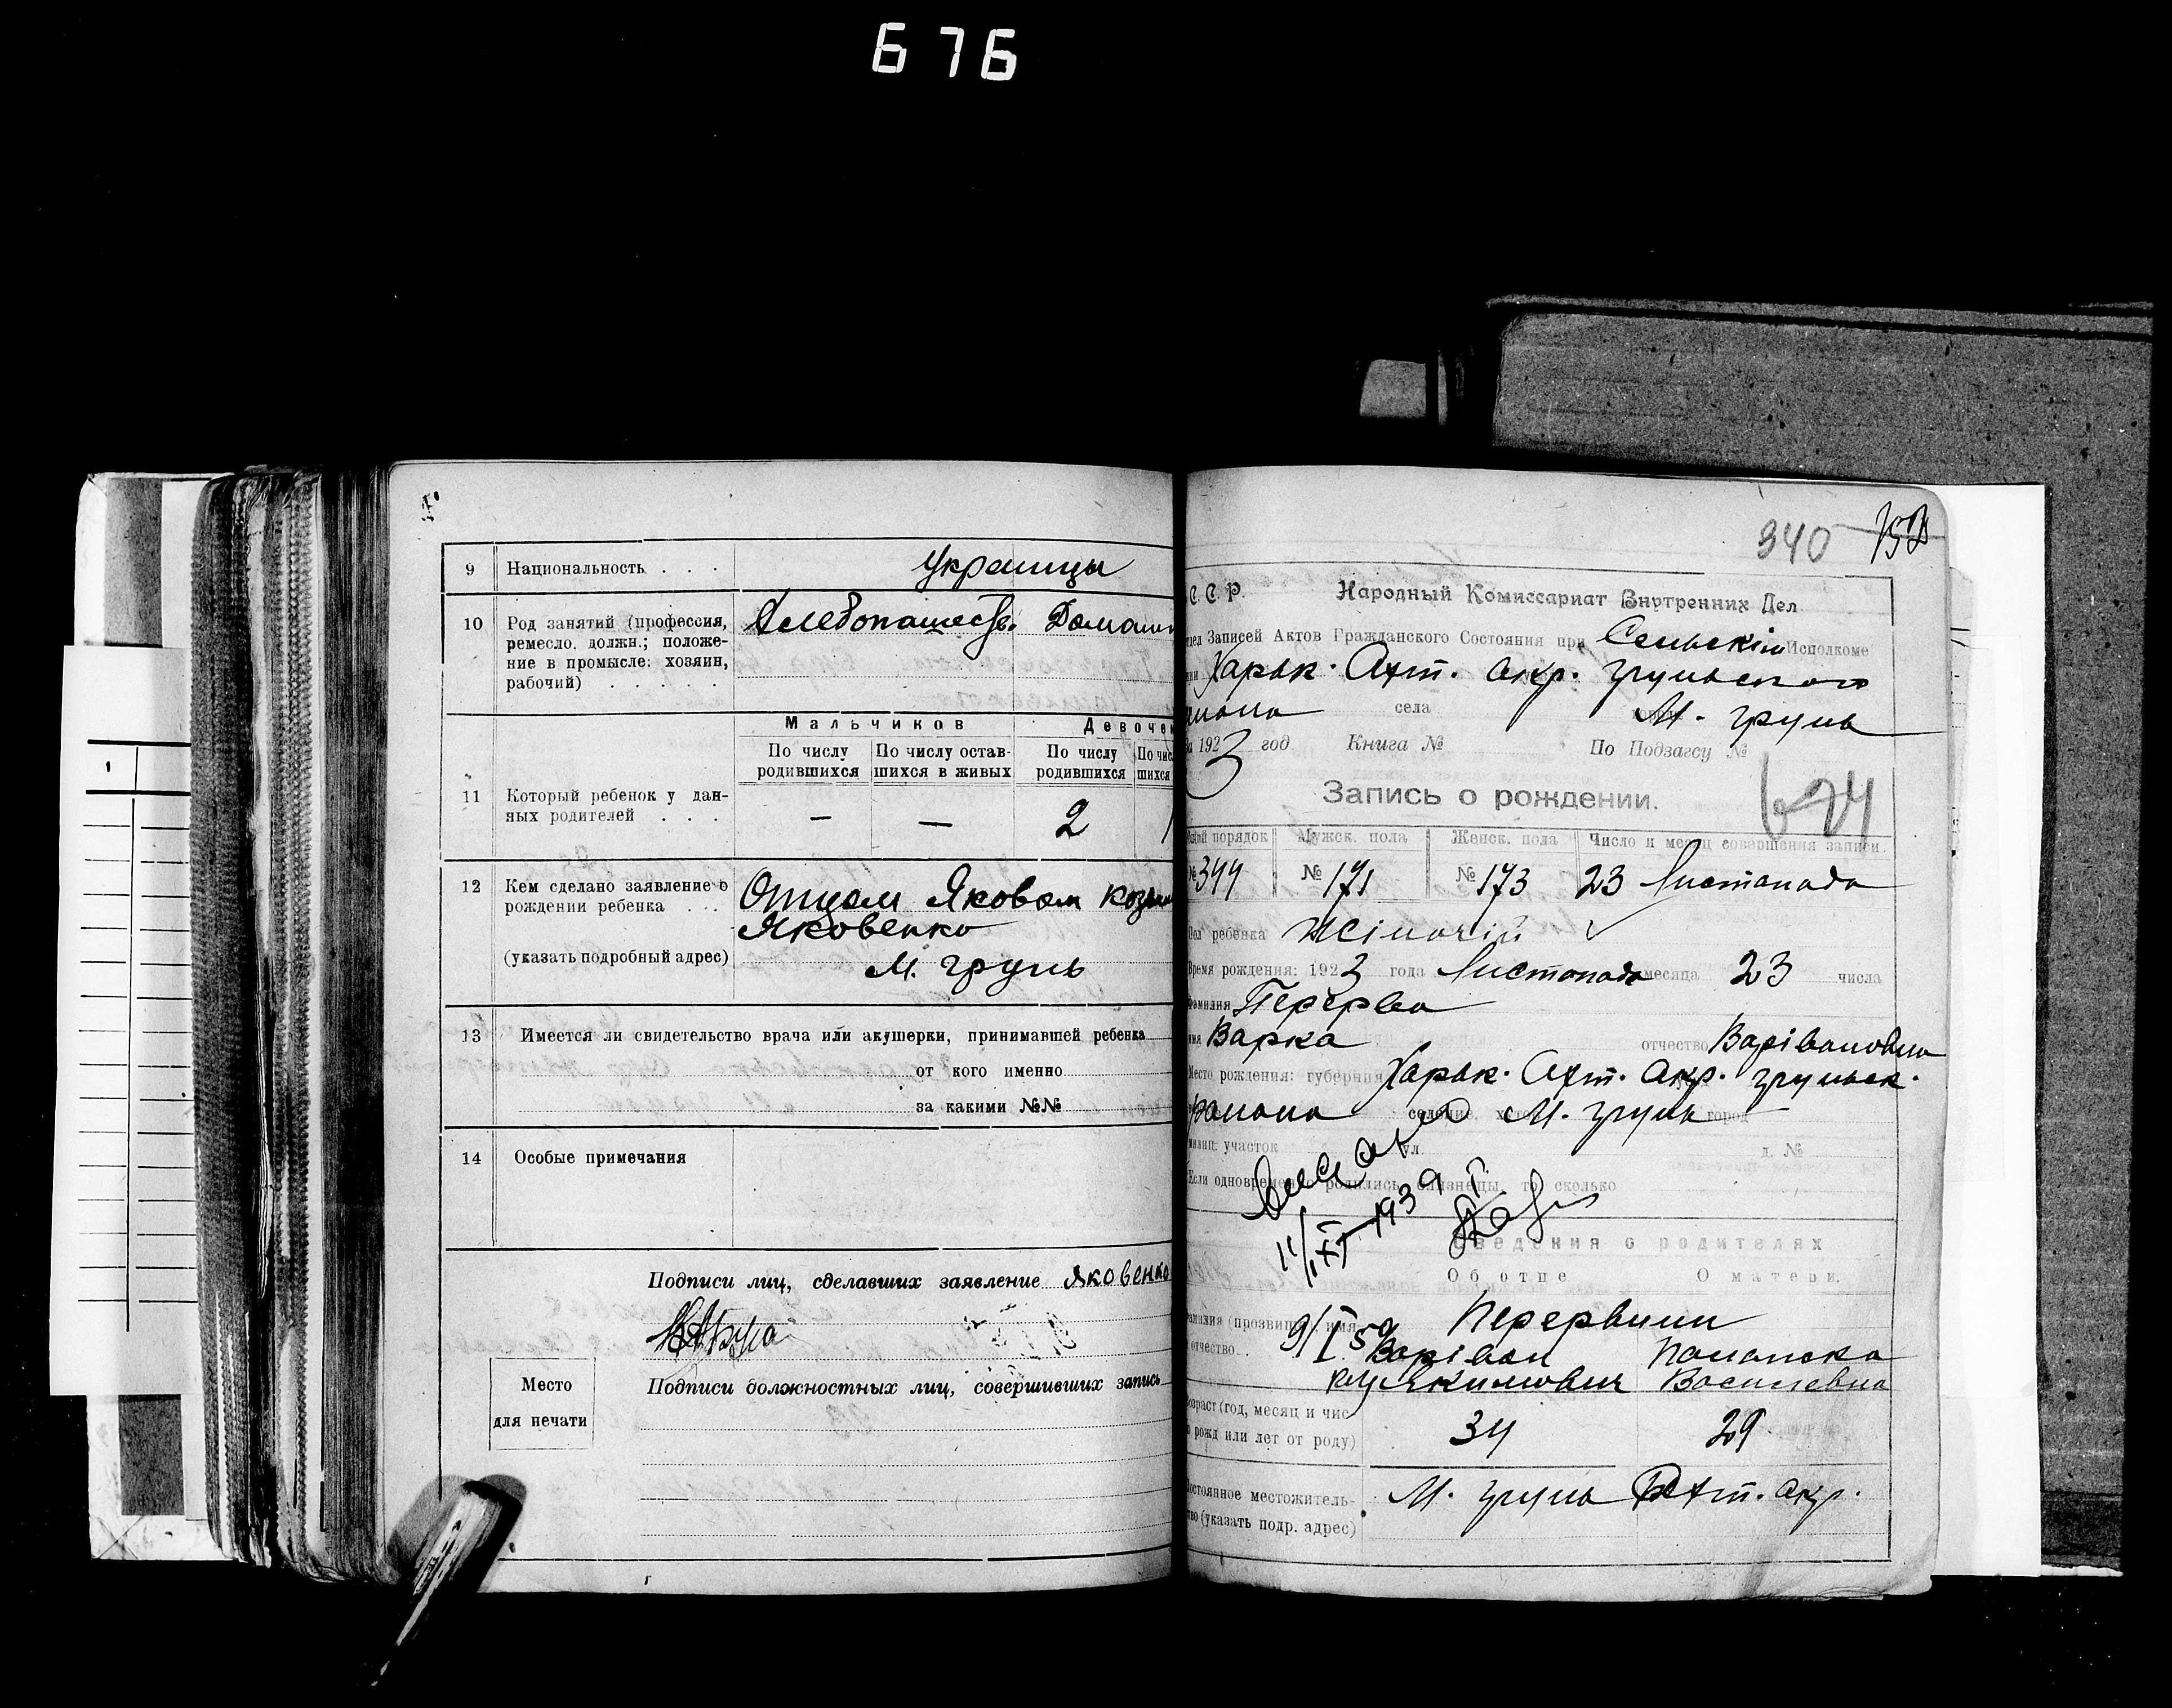 676
9 Национальность . . . украинцы
10 Род занятий (профессия, ремесло, должн.; положение в промысле: хозяин, рабочий) . . . . . Хлебопашеств. Домашн
Мальчиков Девочек
По числу родившихся По числу оставшихся в живых По числу родившихся По чис шихся
11 Который ребенок у данных родителей . . . — — 2 1
12 Кем сделано заявление о рождении ребенка . . . Отцом Яковом
Яковенко
(указать подробный адрес) М. Грунь
13 Имеется ли свидетельство врача или акушерки, принимавшей ребенка
от кого именно
за какими №№
14 Особые примечания
Подписи лиц, сделавших заявление Яковенко
Место для печати
Подписи должностных лиц, совершивших запись
340
С.С.Р. Народный Комиссариат Внутренних Дел
дел Записей Актов Гражданского Состояния при Сельскім Исполкоме
Харьк. Охт. окр. Грунського
села М. Грунь
За 1923 год Книга № По Подзагсу №
Запись о рождении. 674
порядок Мужск. пола Женск. пола Число и месяц совершения записи.
№ 344 № 171 № 173 23 Листопада
Пол ребенка Жіночій
Время рождения: 1923 года Листопада месяца 23 числа
Фамилия Перерва
имя Варка отчество Варівановна
Место рождения: губерния Харьк. Охт. Окр. Груньск.
района селение, хутор М. Грунь город
участок ул. д. №
Если одновременно родились близнецы, то сколько
11/XI-1939
Сведения о родителях
Об отце О матери.
Фамилия (прозвище), имя 9/I 59 Перервини
отчество . . Варіван Поланска
Якимович Василевна
Возраст (год, месяц и число рожд или лет от роду) 34 29
Постоянное местожительство (указать подр. адрес) М. Грунь Охт. окр.